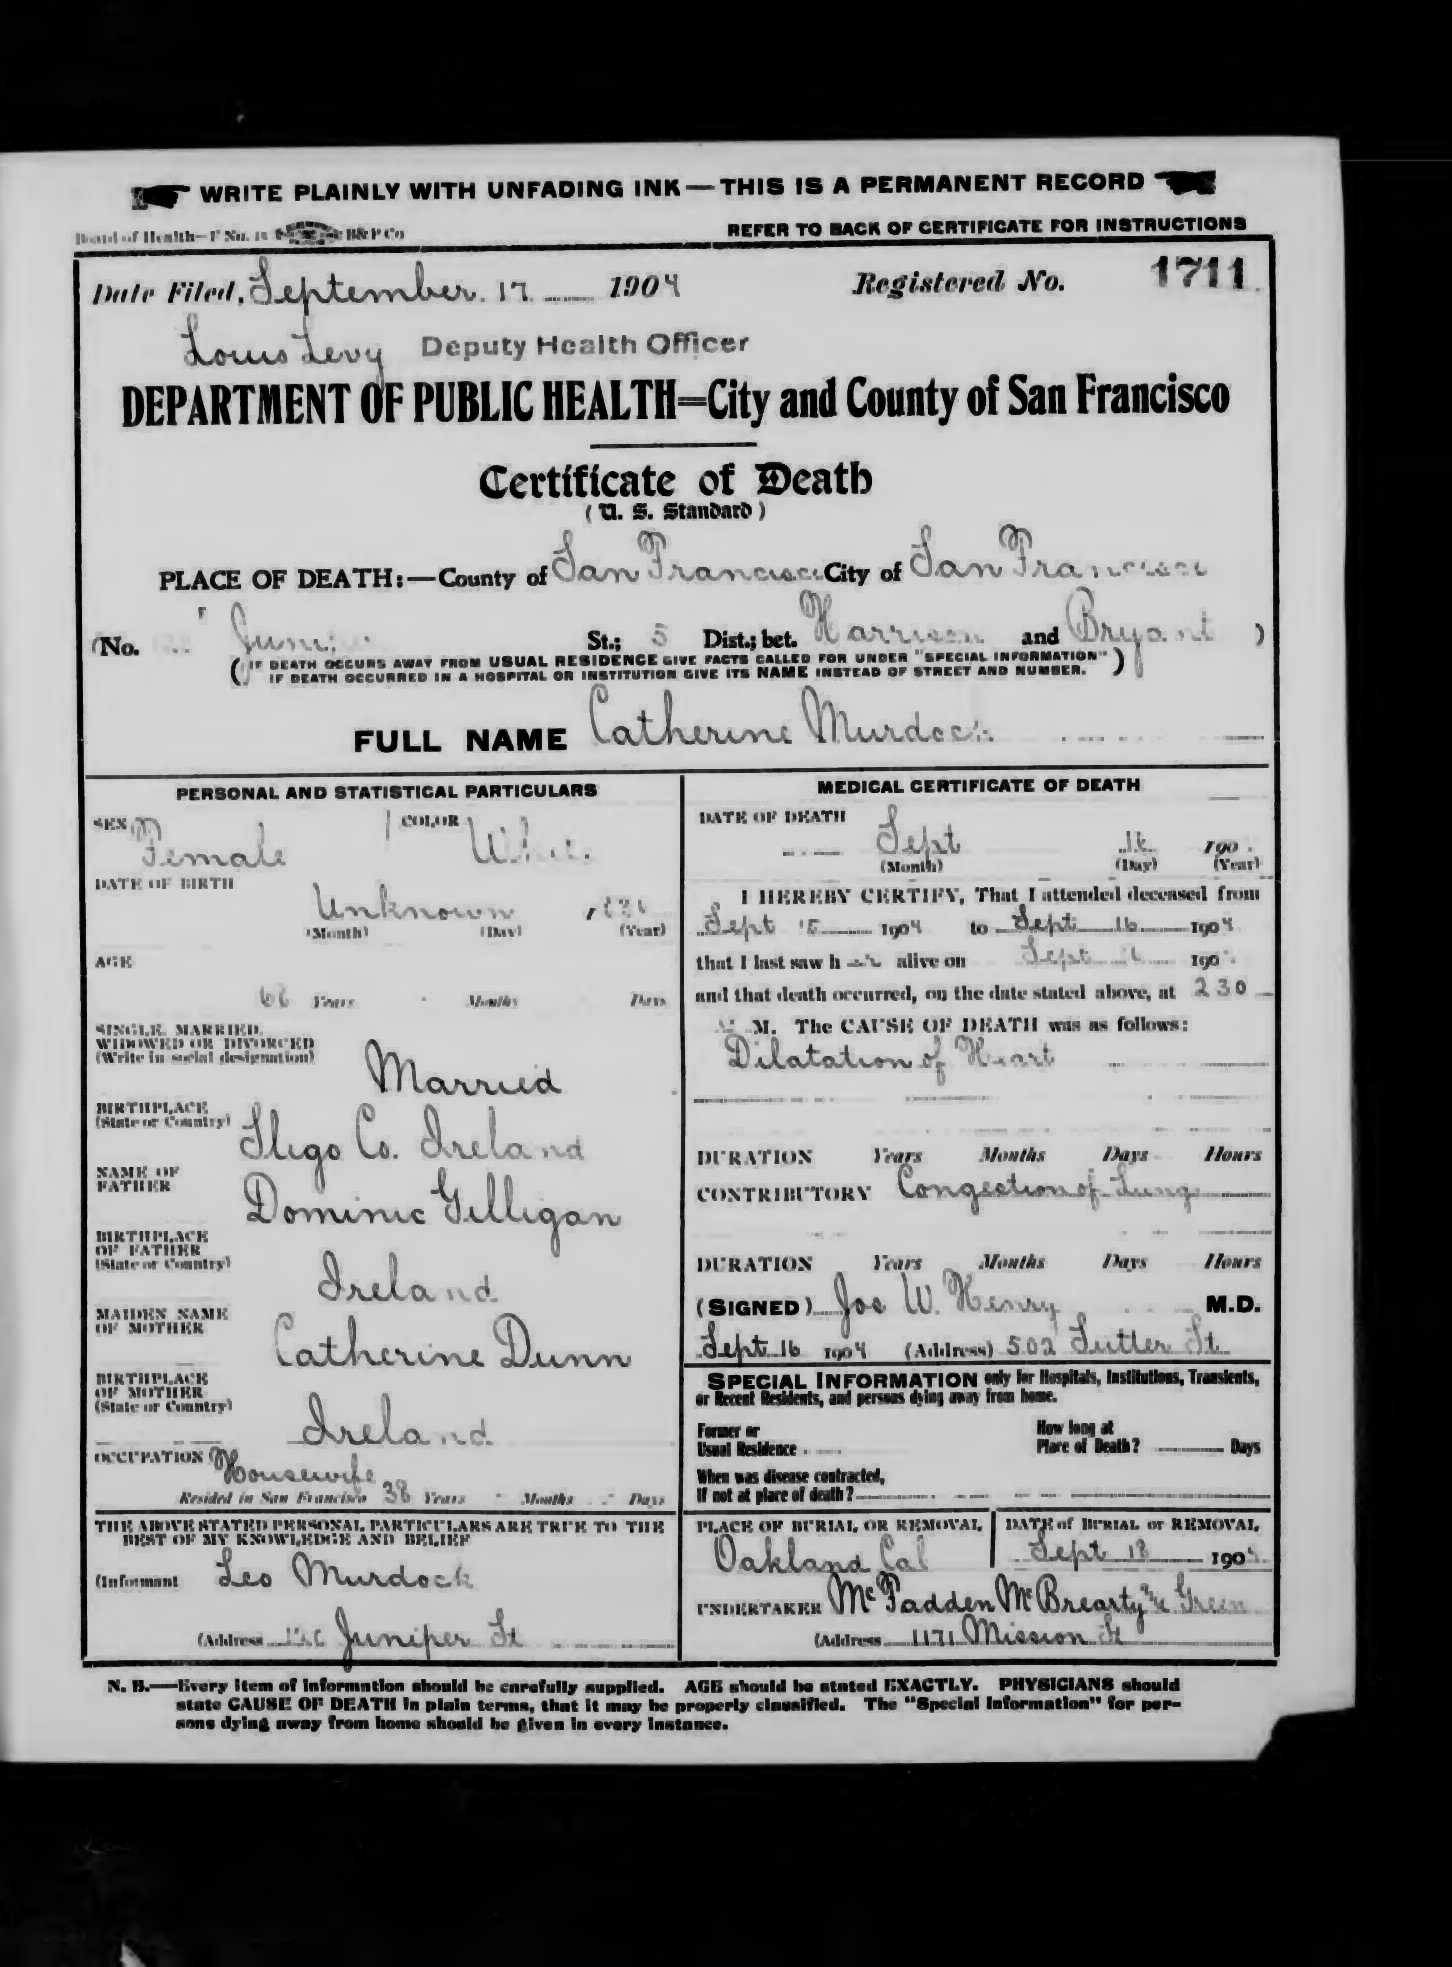 WRITE PLAINLY WITH UNFADING INK—THIS IS A PERMANENT RECORD
Board of Health—F No. B&P Co
REFER TO BACK OF CERTIFICATE FOR INSTRUCTIONS
Date Filed, September 17 1904 Registered No. 1711
Louis Levy Deputy Health Officer
DEPARTMENT OF PUBLIC HEALTH=City and County of San Francisco
Certificate of Death
(U. S. Standard)
PLACE OF DEATH:—County of San Francisco City of San Francisco
(No. St.; 5 Dist.; bet. Harrison and Bryant )
( IF DEATH OCCURS AWAY FROM USUAL RESIDENCE GIVE FACTS CALLED FOR UNDER "SPECIAL INFORMATION" )
IF DEATH OCCURRED IN A HOSPITAL OR INSTITUTION GIVE ITS NAME INSTEAD OF STREET AND NUMBER.
FULL NAME Catherine Murdock
PERSONAL AND STATISTICAL PARTICULARS
SEX Female COLOR White
DATE OF BIRTH
Unknown
(Month) (Day) (Year)
AGE
Years Months Days
SINGLE, MARRIED,
WIDOWED OR DIVORCED
(Write in social designation)
Married
BIRTHPLACE
(State or Country) Sligo Co. Ireland
NAME OF
FATHER
Dominic Gilligan
BIRTHPLACE
OF FATHER
(State or Country)
Ireland
MAIDEN NAME
OF MOTHER
Catherine Dunn
BIRTHPLACE
OF MOTHER
(State or Country)
Ireland
OCCUPATION Housewife
Resided in San Francisco 38 Years Months Days
THE ABOVE STATED PERSONAL PARTICULARS ARE TRUE TO THE
BEST OF MY KNOWLEDGE AND BELIEF
(Informant Leo Murdock
(Address Juniper St
MEDICAL CERTIFICATE OF DEATH
DATE OF DEATH
Sept 16 190
(Month) (Day) (Year)
I HEREBY CERTIFY, That I attended deceased from
Sept 15 1904 to Sept 16 1904
that I last saw her alive on Sept 190
and that death occurred, on the date stated above, at 2 30
M. The CAUSE OF DEATH was as follows:
Dilatation of Heart
DURATION Years Months Days Hours
CONTRIBUTORY Congestion of Lung
DURATION Years Months Days Hours
(SIGNED) Jos W. Henry M.D.
Sept 16 1904 (Address) 502 Sutter St
SPECIAL INFORMATION only for Hospitals, Institutions, Transients,
or Recent Residents, and persons dying away from home.
Former or
Usual Residence
How long at
Place of Death? Days
When was disease contracted,
If not at place of death?
PLACE OF BURIAL OR REMOVAL
Oakland Cal
DATE of BURIAL or REMOVAL
Sept 18 1904
UNDERTAKER McFadden McBrearty & Green
(Address 1171 Mission St
N. B.—Every item of information should be carefully supplied. AGE should be stated EXACTLY. PHYSICIANS should
state CAUSE OF DEATH in plain terms, that it may be properly classified. The "Special Information" for per-
sons dying away from home should be given in every instance.